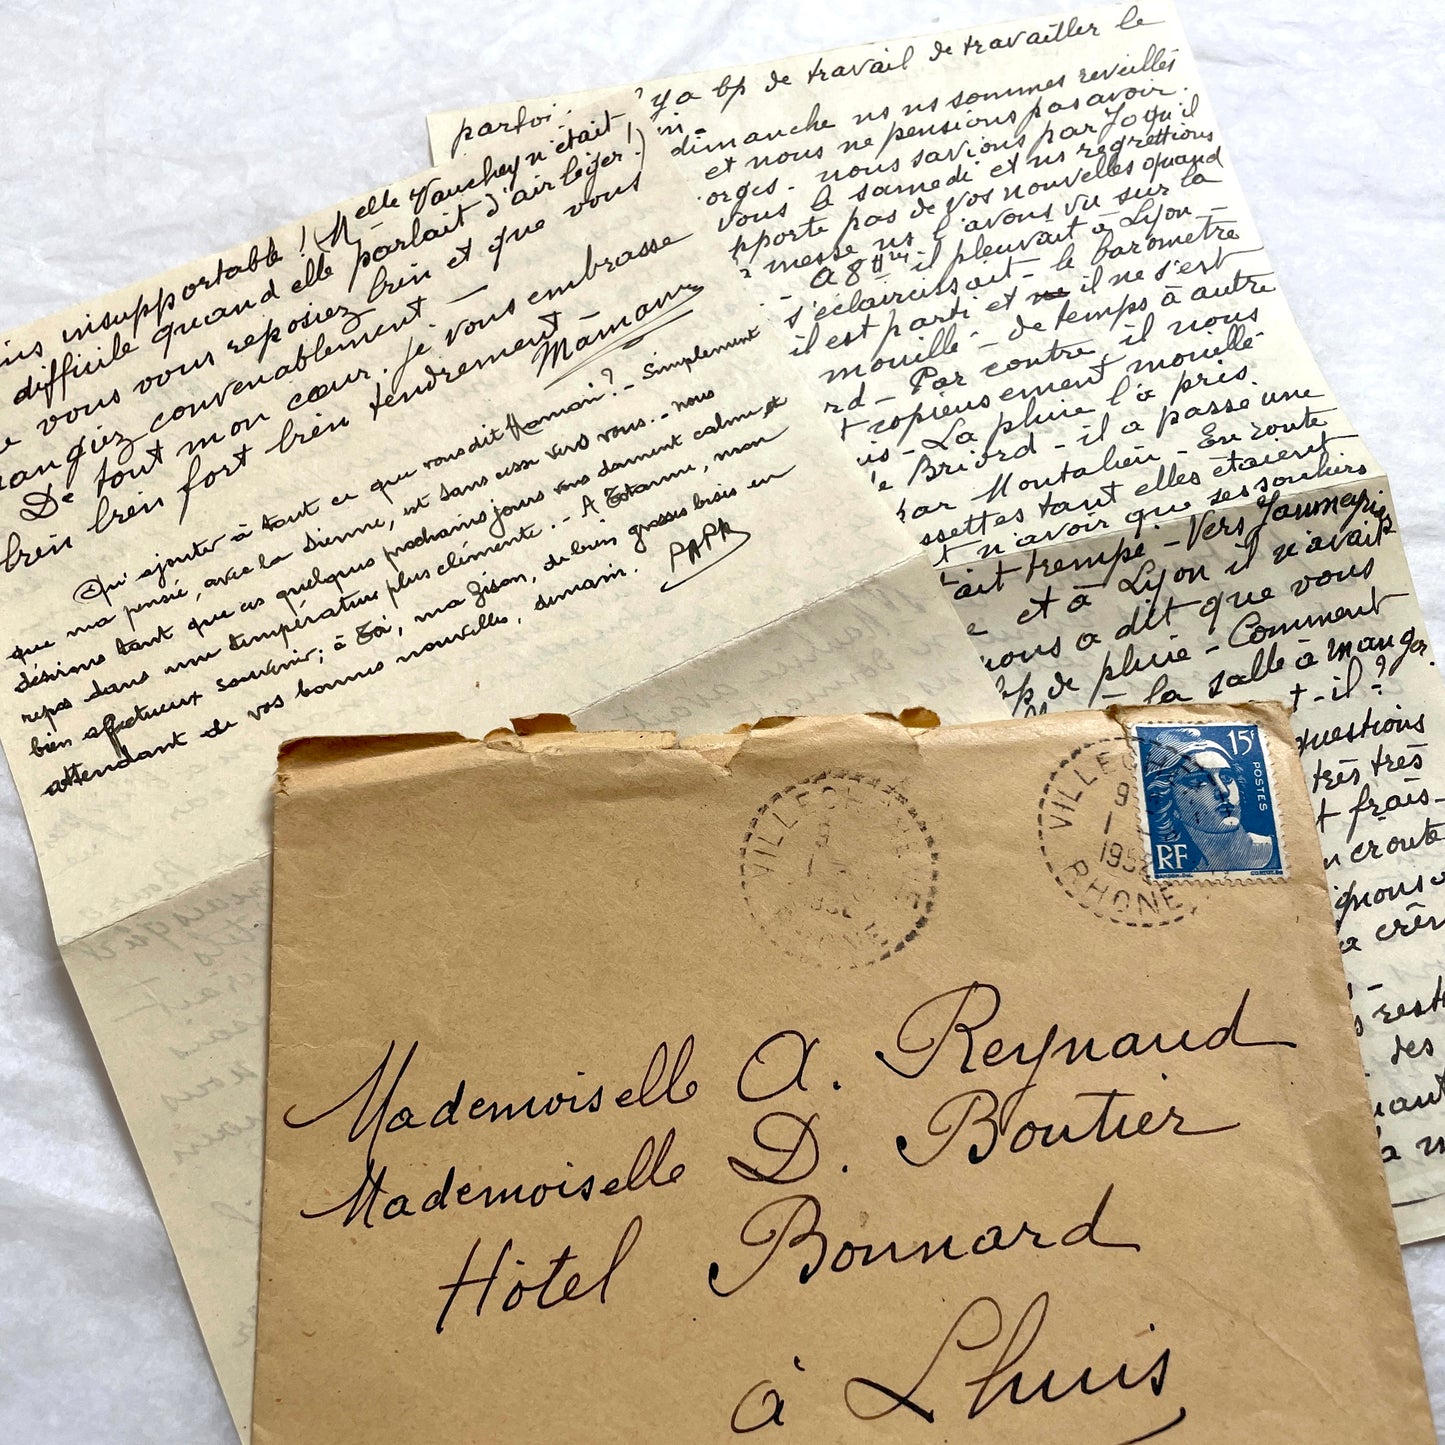 parfoi
insupportable ! (Melle Vauchey n'était
difficile quand elle parlait d'air léger !)
vous vous reposiez bien et que vous
mangiez convenablement —
De tout mon cœur je vous embrasse
bien bien fort bien tendrement —
Maman
Qu'ajouter à tout ce que vous dit Maman ? — Simplement
que ma pensée, avec la sienne, est sans cesse vers vous. — Nous
désirons tant que ces quelques prochains jours vous donnent calme et
repos dans une température plus clémente. — A Totanne, mon
bien affectueux souvenir ; à Toi, ma Zizon, de bien grosses bises en
attendant de vos bonnes nouvelles, demain. PAPA
y a bp de travail de travailler le
dimanche ns ns sommes reveillés
et nous ne pensions pas avoir
orges - nous savions par Jo qu'il
vous le samedi et ns regrettions
pporte pas de vos nouvelles quand
messe ns l'avons vu sur la
- A 8 hres il pleuvait à Lyon -
s'éclaircissait - le baromètre
il est parti et il ne s'est
mouillé - de temps à autre
rd - Par contre, il nous
copieusement mouillé
is - La pluie l'a pris
e Briord - il a passé une
par Montalieu - En route
ssettes tant elles étaient
t n'avoir que ses souliers
ait trempé - Vers
et à Lyon il n'avait
nous a dit que vous
bp de pluie - Comment
la salle à manger
t-il ?
questions
très très
t frais -
n croute
ignons
a crèm
restt
des
uant
la m
15f
POSTES
RF
VILLECHENEVE
9
1952
RHONE
VILLECHENEVE
9
RHONE
Mademoiselle A. Reynaud
Mademoiselle D. Boutier
Hôtel Bonnard
à Lhuis